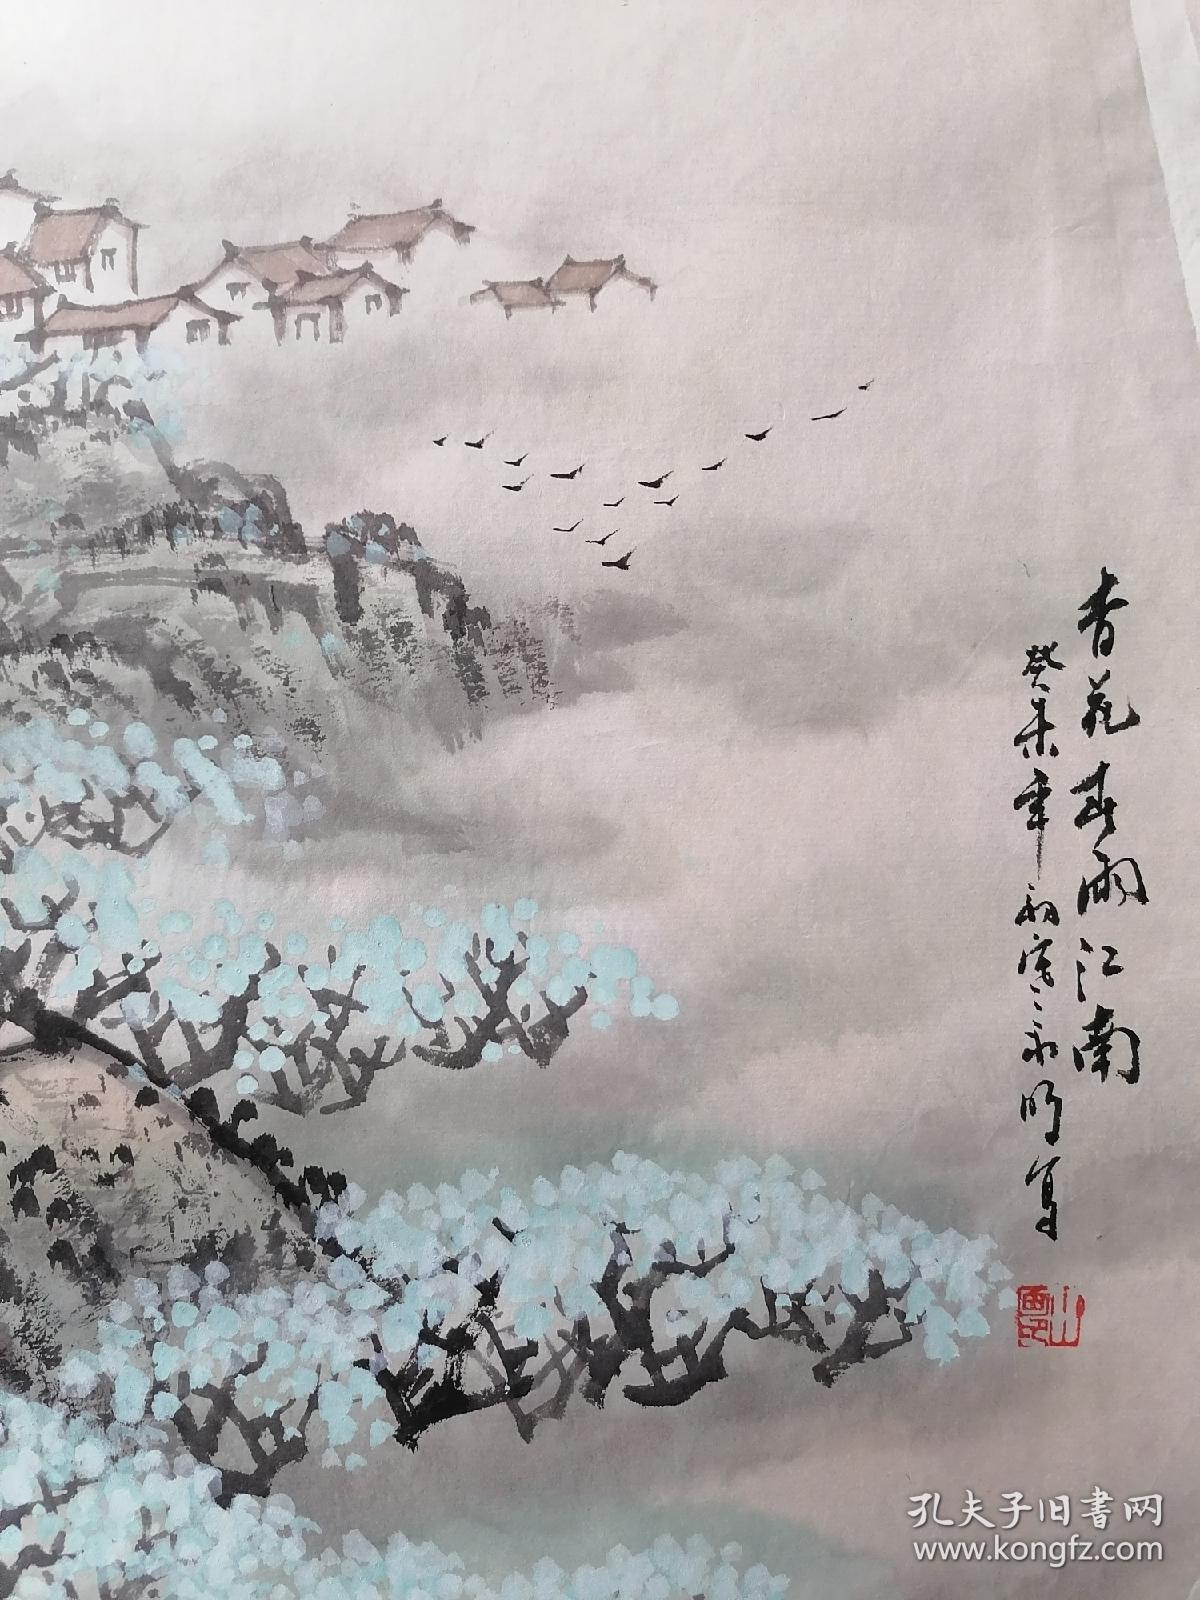 杏花春雨江南
癸未年初寒永明写
山西
孔夫子旧书网
www.kongfz.com